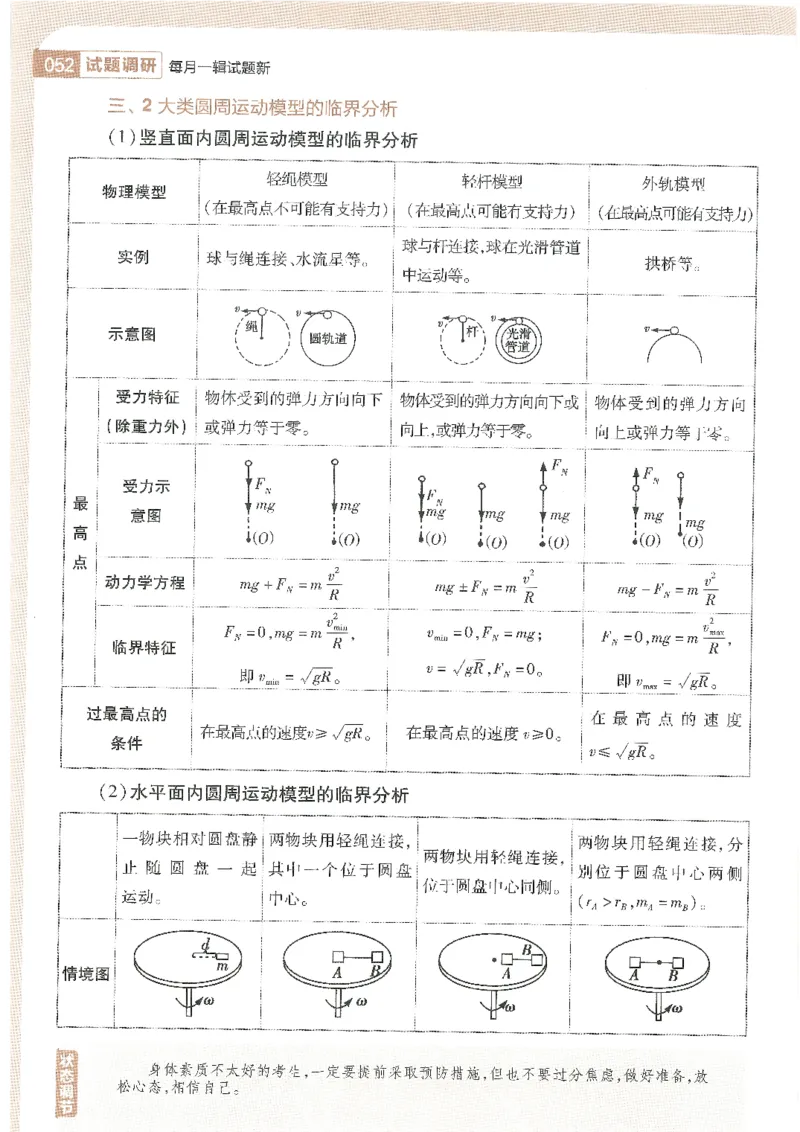 052 试题调研 每月一辑试题新
三、2大类圆周运动模型的临界分析
(1)竖直面内圆周运动模型的临界分析
物理模型
轻绳模型
(在最高点不可能有支持力)
轻杆模型
(在最高点可能有支持力)
外轨模型
(在最高点可能有支持力)
实例
球与绳连接、水流星等。
球与杆连接,球在光滑管道
中运动等。
拱桥等。
示意图
v 绳
v 圆轨道
v 杆
v 光滑
管道
v
最高点
受力特征
(除重力外)
物体受到的弹力方向向下
或弹力等于零。
物体受到的弹力方向向下或
向上,或弹力等于零。
物体受到的弹力方向
向上或弹力等于零。
受力示
意图
F_N mg (O)
mg (O)
F_N mg (O)
mg (O)
F_N mg (O)
F_N mg (O)
mg (O)
动力学方程
mg+F_N=m v²/R
mg±F_N=m v²/R
mg-F_N=m v²/R
临界特征
F_N=0,mg=m v²_min/R,
即v_min=√gR。
v_min=0,F_N=mg;
v=√gR,F_N=0。
F_N=0,mg=m v²_max/R,
即v_max=√gR。
过最高点的
条件
在最高点的速度v≥√gR。
在最高点的速度v≥0。
在最高点的速度
v≤√gR。
(2)水平面内圆周运动模型的临界分析
一物块相对圆盘静
止随圆盘一起
运动。
两物块用轻绳连接,
其中一个位于圆盘
中心。
两物块用轻绳连接,
位于圆盘中心同侧。
两物块用轻绳连接,分
别位于圆盘中心两侧
(r_A>r_B,m_A=m_B)。
情境图
d m ω
A B ω
B A ω
A B ω
状态调节
身体素质不太好的考生,一定要提前采取预防措施,但也不要过分焦虑,做好准备,放
松心态,相信自己。